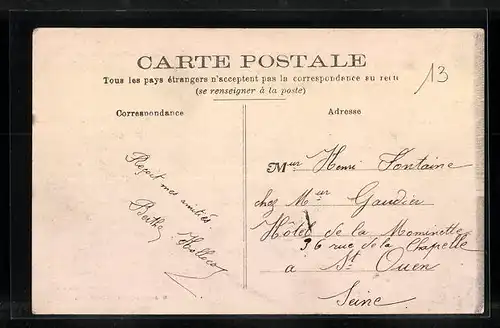 CARTE POSTALE
Tous les pays étrangers n'acceptent pas la correspondence au recto
(se renseigner à la poste)
Correspondance
Adresse
13
mes amitiés
Berthe
Mur Henri Fontaine
chez Mur Gaudier
Hôtel de la Mominette
36 rue de la Chapelle
a St Ouen
Seine.